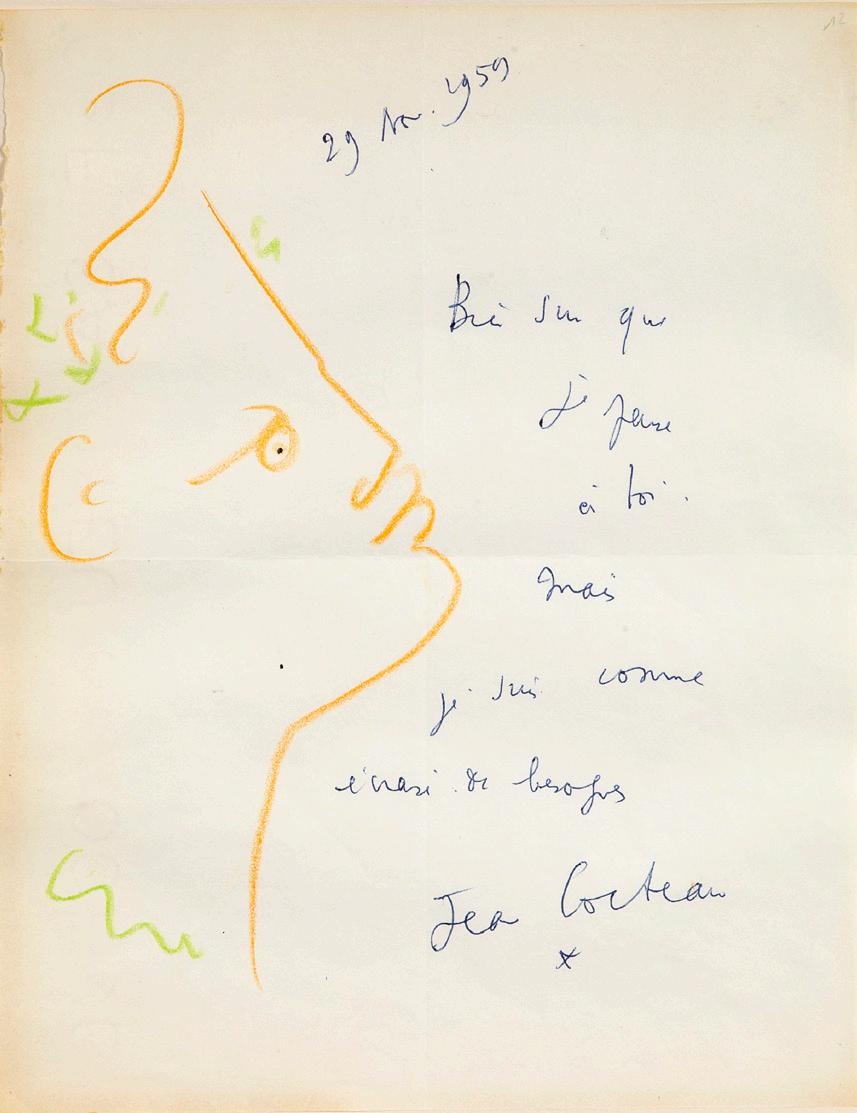 12
29 Nov. 1959
Bien sûr que
je pense
à toi.
mais
je suis comme
écrasé de besognes
Jean Cocteau